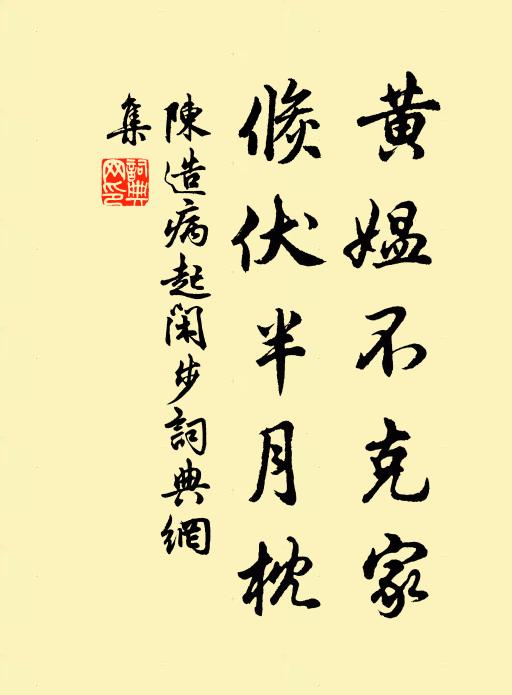 黄媪不克家
倏伏半月枕
陳造病起閑步詞典網
集
詞典網印